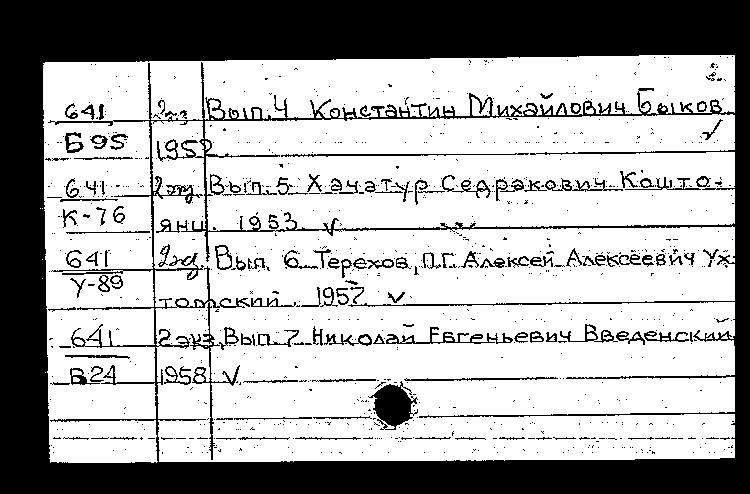 2.
641 2 экз Вып. 4 Константин Михайлович Быков
Б 95 1952. ✓
641 2 экз. Вып. 5 Хачатур Седракович Кошто-
К-76 янц. 1953. ✓
641 2 экз. Вып. 6 Терехов, П.Г. Алексей Алексеевич Ух-
У-89 томский. 1957. ✓
641 2 экз. Вып. 7 Николай Евгеньевич Введенский
В 24 1958 ✓